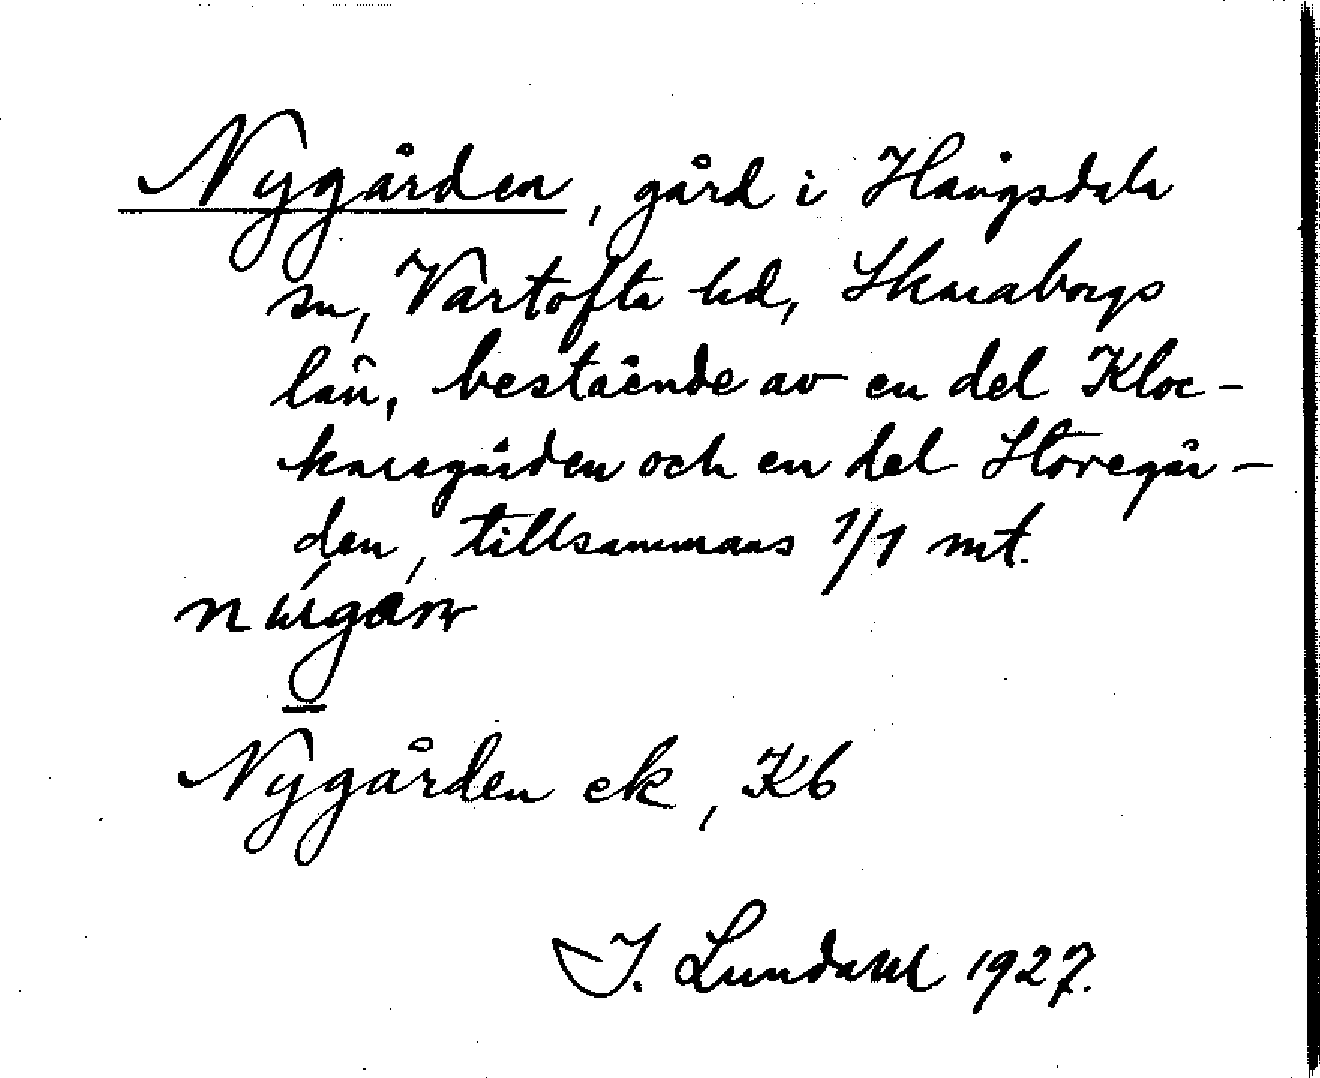 Nygården, gård i Hångsdala
sn, Vartofta hd, Skaraborgs
län, bestående av en del Kloc-
karegården och en del Storegår-
den, tillsammans 1/1 mt.
Nygården ek, Kb
I. Lundahl 1927.